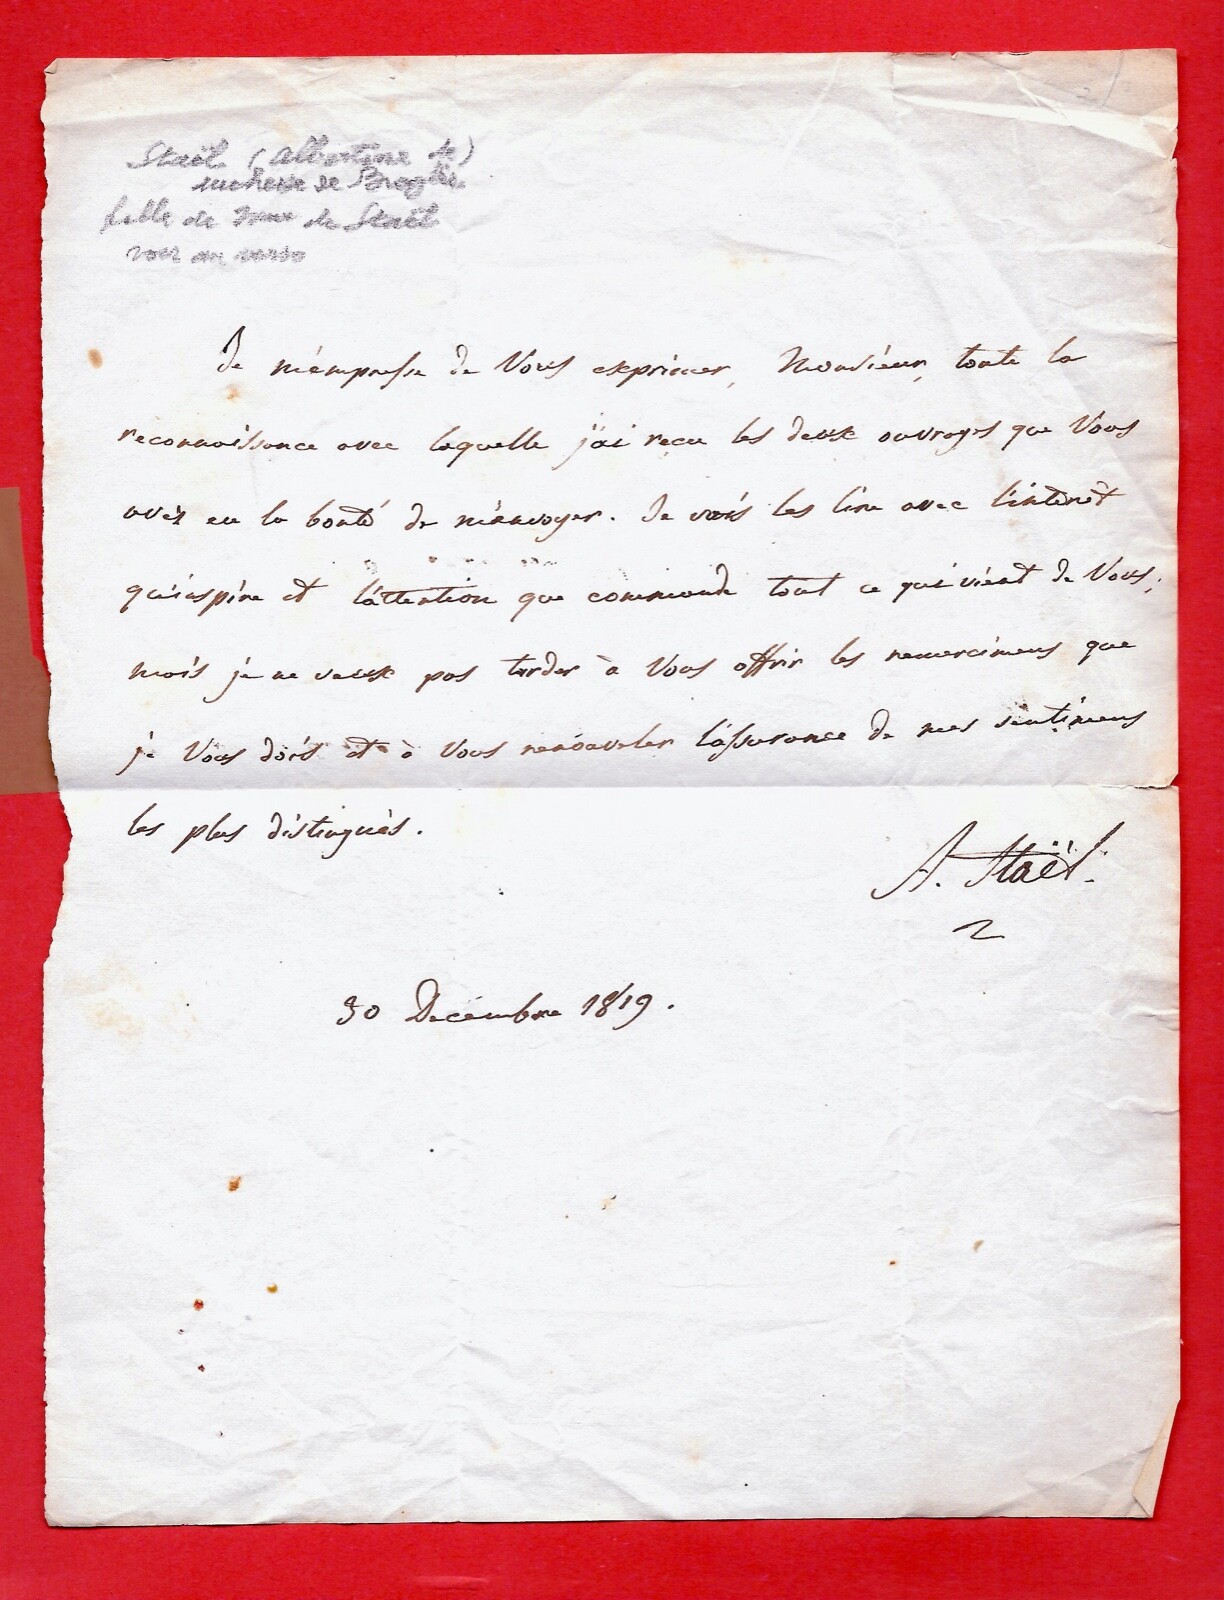 Staël (Albertine de)
duchesse de Broglie
fille de Mme de Staël
voir au verso
Je m'empresse de Vous exprimer, Monsieur, toute la
reconnoissance avec laquelle j'ai reçu les deux ouvrages que Vous
avez eu la bonté de m'envoyer. Je vais les lire avec l'intérêt
qu'inspire et l'attention que commande tout ce qui vient de Vous;
mais je ne veux pas tarder à Vous offrir les remercimens que
je Vous dois et à Vous renouveler l'assurance de mes sentimens
les plus distingués.
A. Staël.
30 Décembre 1819.